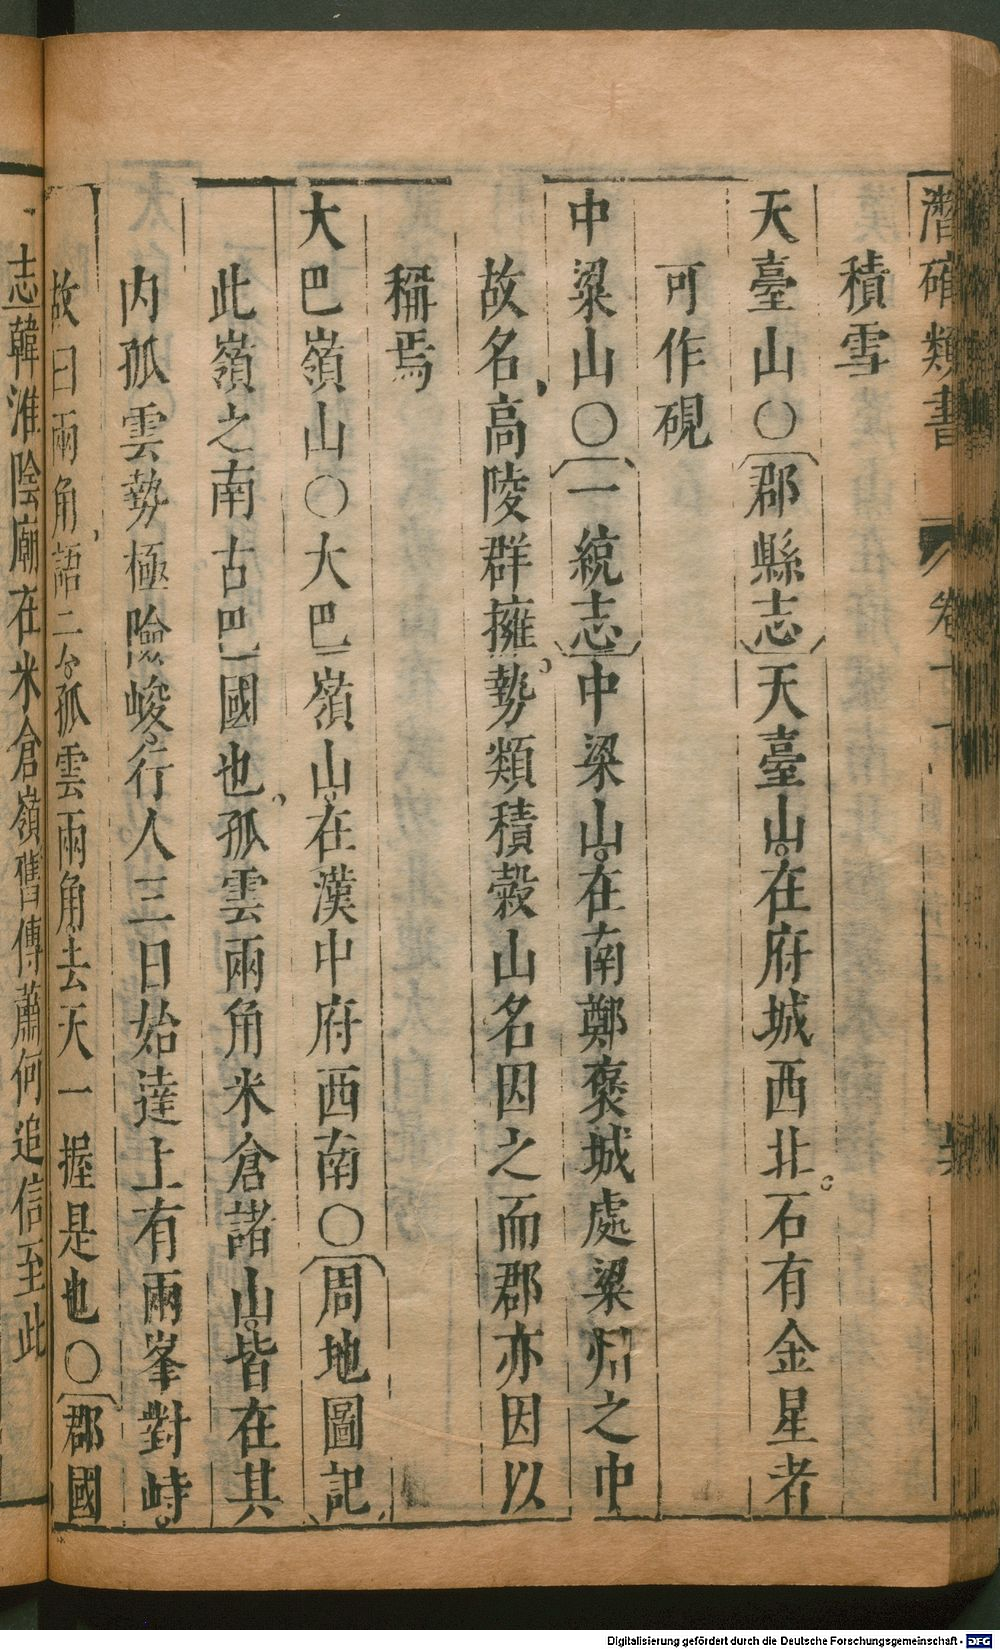 潛確類書 卷二十
積雪
天臺山○郡縣志天臺山在府城西北石有金星者
可作硯
中梁山○一統志中梁山在南鄭褒城處梁州之中
故名高陵群擁勢類積穀山名因之而郡亦因以
稱焉
大巴嶺山○大巴嶺山在漢中府西南○周地圖記
此嶺之南古巴國也孤雲兩角米倉諸山皆在其
內孤雲勢極險峻行人三日始達上有兩峯對峙
故曰兩角語云孤雲兩角去天一握是也○郡國
志韓淮陰廟在米倉嶺舊傳蕭何追信至此
Digitalisierung gefördert durch die Deutsche Forschungsgemeinschaft - DFG